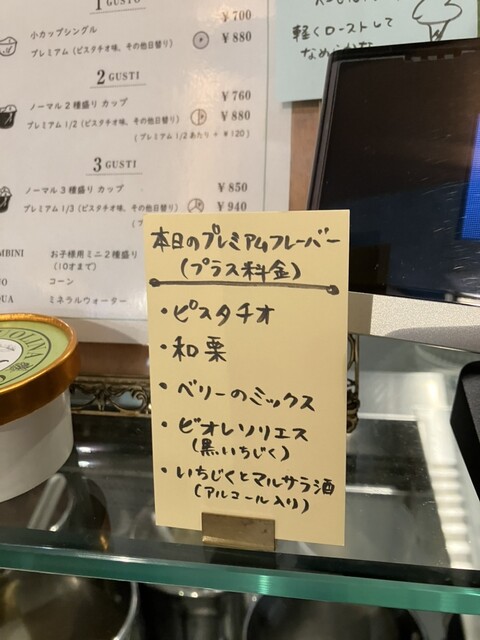 1 GUSTO
¥700
小カップシングル
プレミアム（ピスタチオ味、その他日替り） ¥880
2 GUSTI
ノーマル2種盛り カップ ¥760
プレミアム 1/2（ピスタチオ味、その他日替り） ¥880
（プレミアム 1/2あたり + ¥120）
3 GUSTI
ノーマル3種盛り カップ ¥850
プレミアム 1/3（ピスタチオ味、その他日替り） ¥940
お子様用ミニ2種盛り
（10才まで）
コーン
ミネラルウォーター
軽くローストして
本日のプレミアムフレーバー
（プラス料金）
・ピスタチオ
・和栗
・ベリーのミックス
・ビオレソリエス
（黒いちじく）
・いちじくとマルサラ酒
（アルコール入り）